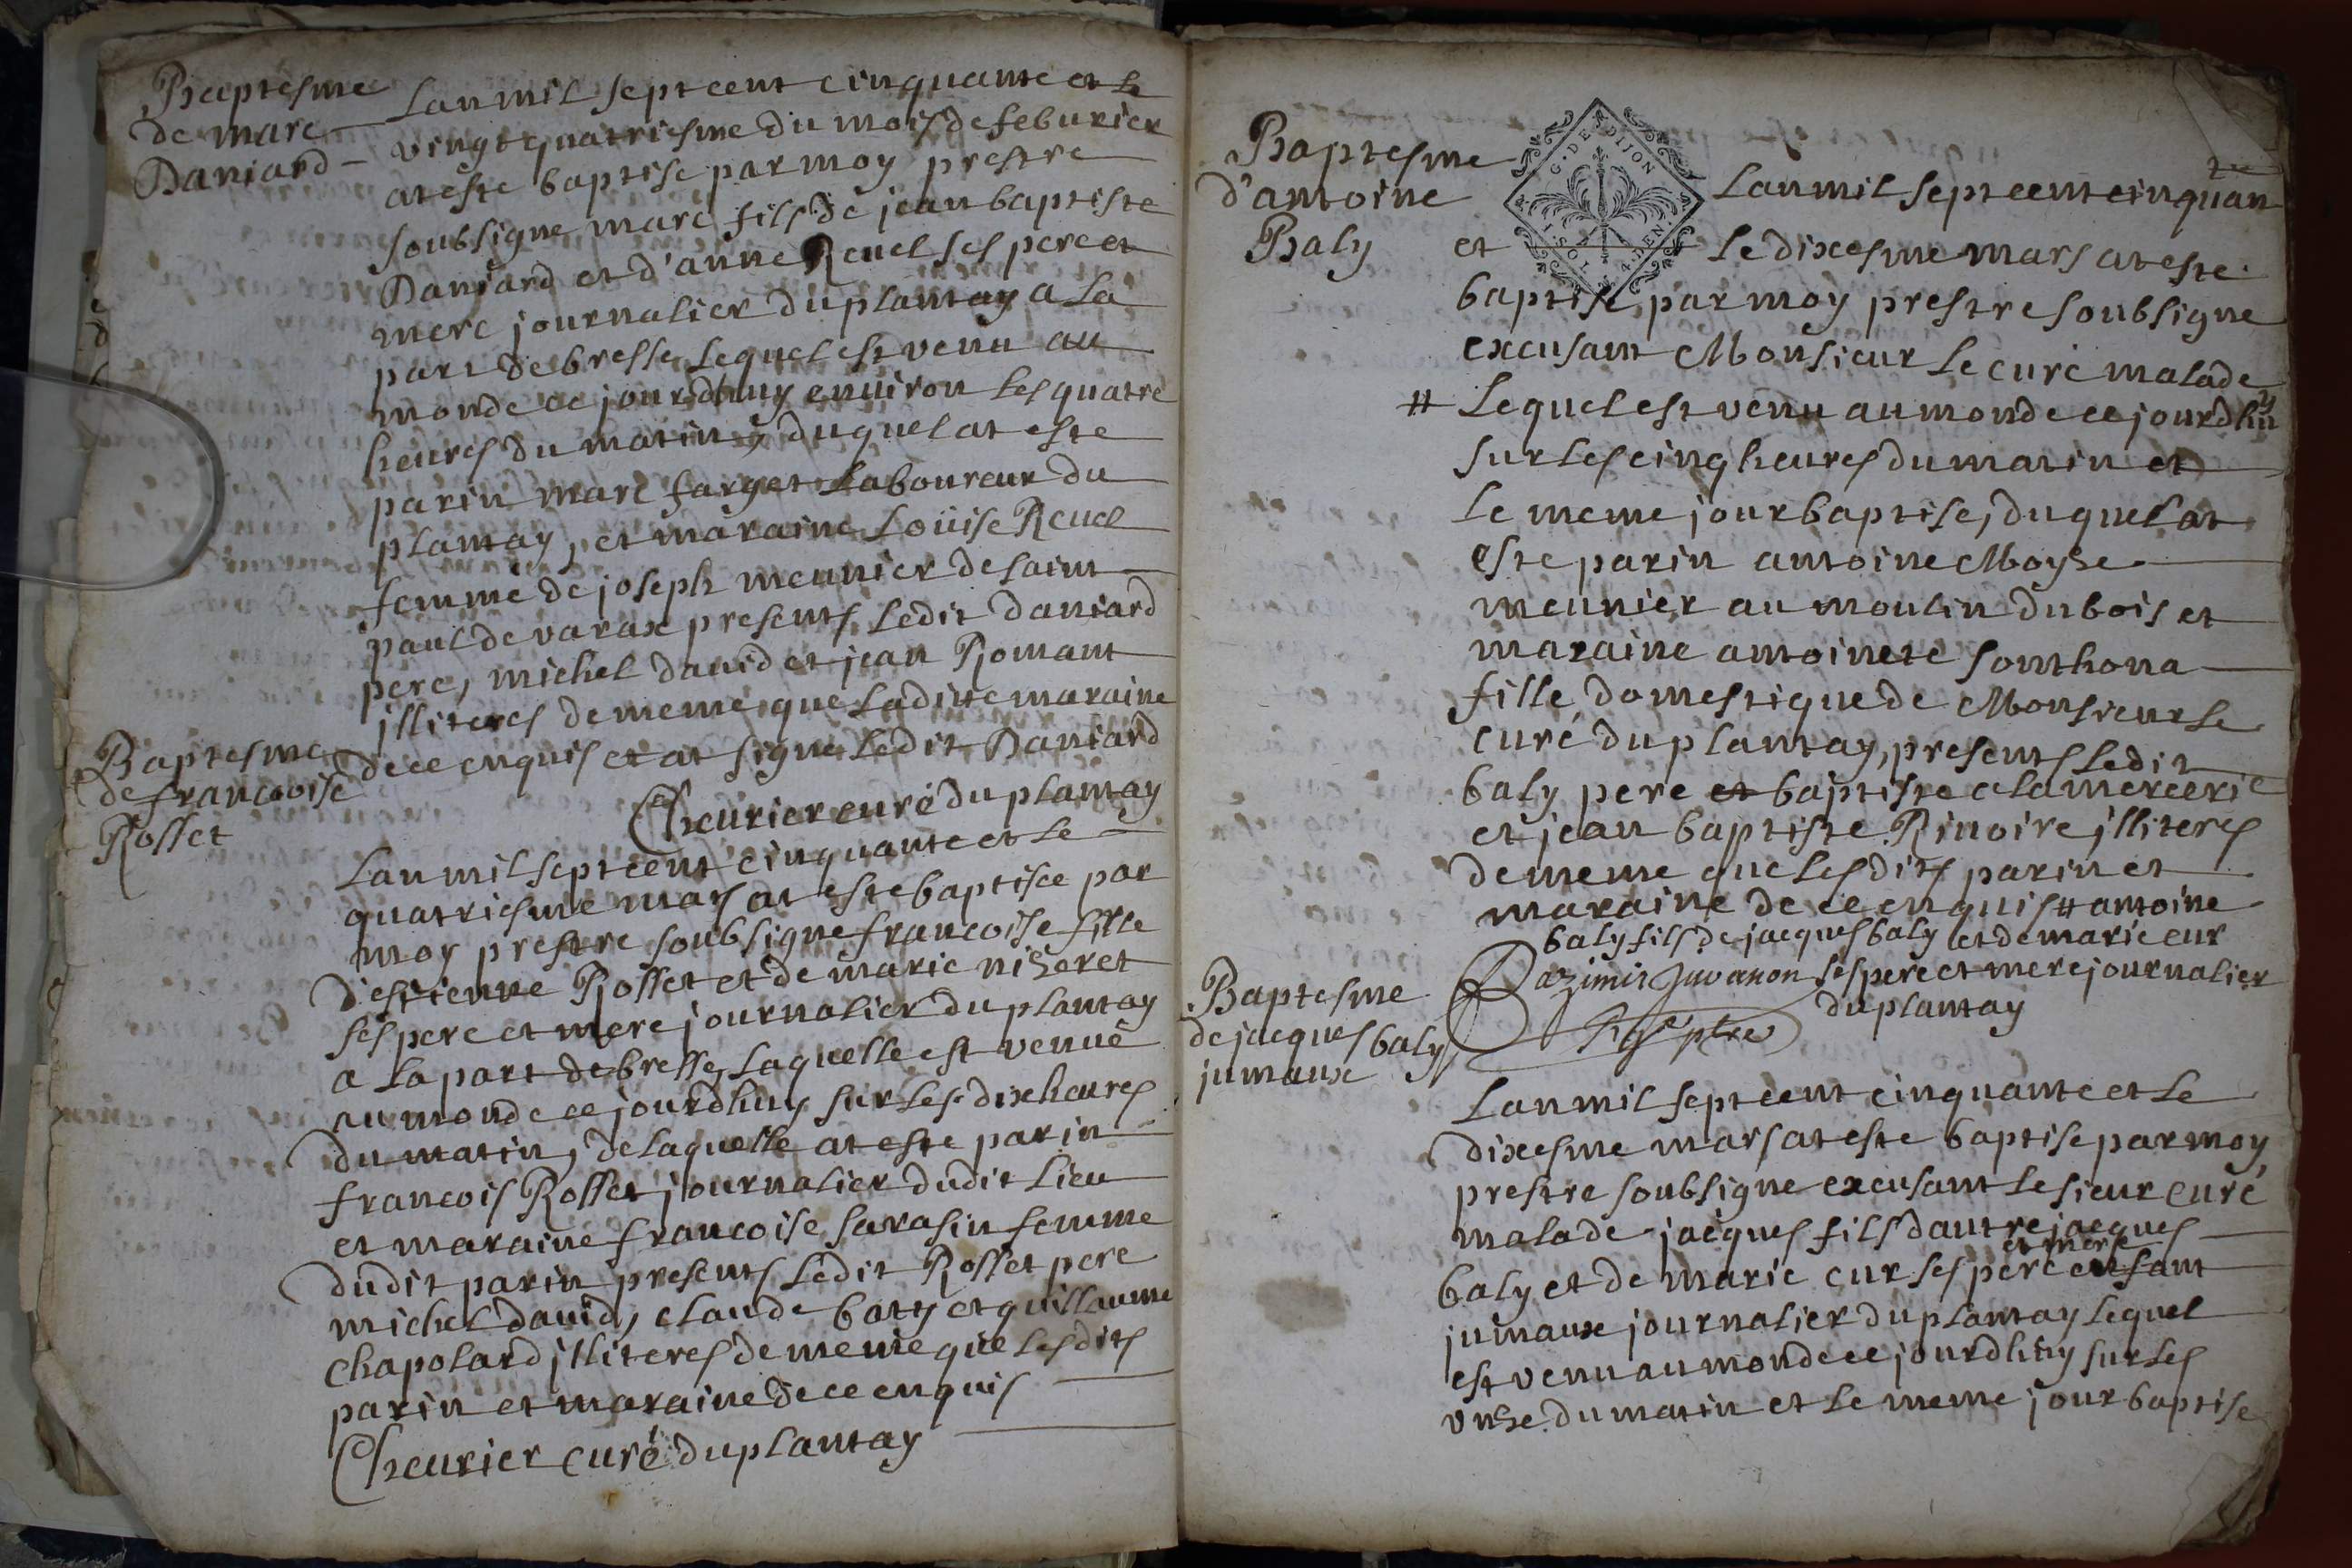 Baptesme
de marc
Daniard
Lan mil sept cent cinquante et le
vingt quatriesme du mois de feburier
at este baptise par moy prestre
soubsigne marc fils de jean baptiste
Daniard et d'anne Reuel ses pere et
mere journalier du plantay a la
part de bresse lequel est venu au
monde ce jourdhuy enuiron les quatre
heures du matin, duquel at este
parin marc farget laboureur du
plantay, et maraine Loüise Reuel
femme de joseph meunier de saint
paul de varax presents ledit daniard
pere, michel dauid et jean Romant
jlliteres de meme que ladite maraine
de ce enquis et at signe ledit Daniard
Cheurier curé du plantay
Baptesme
de francoise
Rosset
Lan mil sept cent cinquante et le
quatriesme mars at este baptisee par
moy prestre soubsigne francoise fille
d'estienne Rosset et de marie nizeret
ses pere et mere journalier du plantay
a la part de bresse, laquelle est venuë
au monde ce jourdhuy sur les dix heures
du matin, de laquelle at este parin
francois Rosset journalier dudit lieu
et maraine francoise sarasin femme
dudit parin presents ledit Rosset pere
michel dauid, claude batty et guillaume
chapolard jlliteres de meme que lesdits
parin et maraine de ce enquis
Cheurier curé du plantay
Baptesme
d'antoine
Baly
G. DE DIJON
1. SOL. 4. DEN.
Lan mil sept cent cinquan
te
et le dixesme mars at este
baptise par moy prestre soubsigne
excusant Monsieur le curé malade
# Lequel est venu au monde ce jourdhuy
sur les cinq heures du matin et
le meme jour baptise, duquel at
este parin antoine Moyse
meunier au moulin du bois et
maraine antoinete sonthona
fille domestique de Monsieur le
curé du plantay, presents ledit
baly pere et baptiste clamercerie
et jean baptiste Rinoire jlliteres
de meme que lesdits parin et
maraine de ce enquis # antoine
baly fils de jacques baly et de marie cur
ses pere et mere journalier
du plantay
Baptesme
de jacques baly
jumaux
Lan mil sept cent cinquante et le
dixesme mars at este baptise par moy
prestre soubsigne excusant le sieur curé
malade jacques fils dautre jacques
et mere
baly et de marie cur ses pere estant
jumaux journalier du plantay lequel
est venu au monde ce jourdhuy sur les
vnze du matin et le meme jour baptise